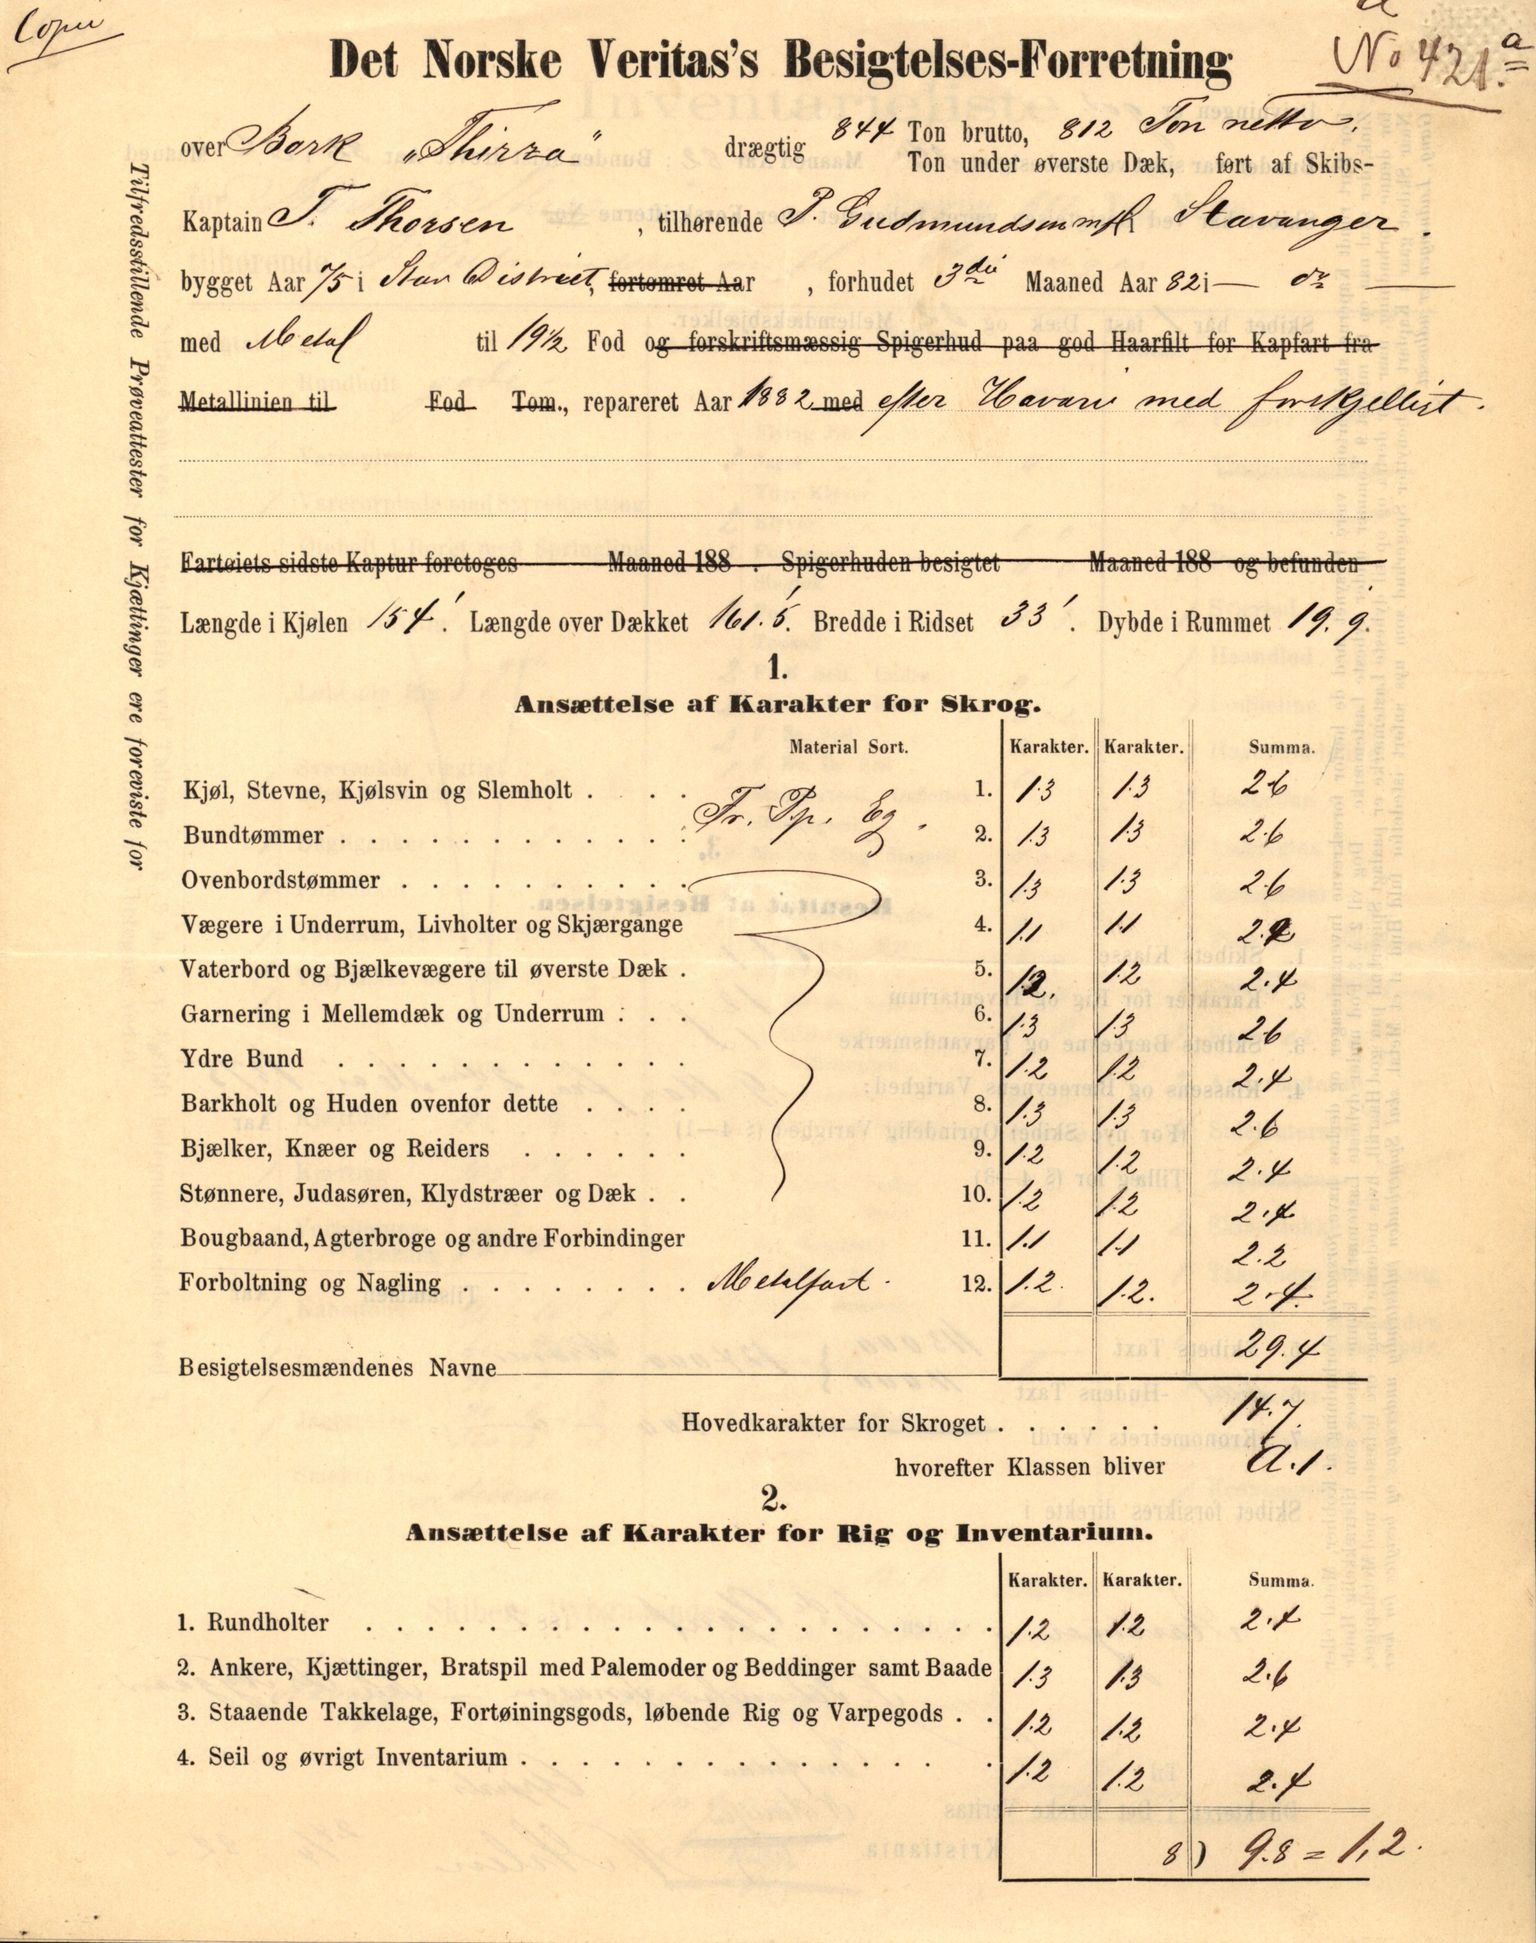 Copie
No 421.a
Det Norske Veritas's Besigtelses-Forretning
over Bark "Thirza" drægtig 844 Ton brutto, 812 Ton netto.
Ton under øverste Dæk, ført af Skibs-
Kaptain T. Thorsen, tilhørende P. Gudmundsen mfl Stavanger.
bygget Aar 75 i Stav District, fortømret Aar , forhudet 3die Maaned Aar 82 i — do —
med Metal til 19½ Fod og forskriftsmæssig Spigerhud paa god Haarfilt for Kapfart fra
Metallinien til Fod Tom., repareret Aar 1882 med efter Havari med forskjelligt.
Fartøiets sidste Kaptur foretoges Maaned 188 . Spigerhuden besigtet Maaned 188 og befunden
Længde i Kjølen 154'. Længde over Dækket 161.5'. Bredde i Ridset 33'. Dybde i Rummet 19.9.
1.
Ansættelse af Karakter for Skrog.
Material Sort. Karakter. Karakter. Summa.
Kjøl, Stevne, Kjølsvin og Slemholt . . . 1. 1.3 1.3 2.6
Fr. Pp. Eg.
Bundtømmer . . . . . . . . . . . . 2. 1.3 1.3 2.6
Ovenbordstømmer . . . . . . . . . . 3. 1.3 1.3 2.6
Vægere i Underrum, Livholter og Skjærgange 4. 1.1 1.1 2.2
Vaterbord og Bjælkevægere til øverste Dæk . 5. 1.2. 1.2 2.4
Garnering i Mellemdæk og Underrum . . . 6. 1.3 1.3 2.6
Ydre Bund . . . . . . . . . . . . 7. 1.2 1.2 2.4
Barkholt og Huden ovenfor dette . . . . 8. 1.3 1.3 2.6
Bjælker, Knæer og Reiders . . . . . . 9. 1.2 1.2 2.4
Stønnere, Judasøren, Klydstræer og Dæk . . 10. 1.2 1.2 2.4
Bougbaand, Agterbroge og andre Forbindinger 11. 1.1 1.1 2.2
Forboltning og Nagling . . . . . . . . Metalfast. 12. 1.2. 1.2. 2.4.
29.4
Besigtelsesmændenes Navne
Hovedkarakter for Skroget . . . . . . 14.7.
hvorefter Klassen bliver A.1.
2.
Ansættelse af Karakter for Rig og Inventarium.
Karakter. Karakter. Summa.
1. Rundholter . . . . . . . . . . . . . . . . . . . . 1.2 1.2 2.4
2. Ankere, Kjættinger, Bratspil med Palemoder og Beddinger samt Baade 1.3 1.3 2.6
3. Staaende Takkelage, Fortøiningsgods, løbende Rig og Varpegods . . 1.2 1.2 2.4
4. Seil og øvrigt Inventarium . . . . . . . . . . . . . . . 1.2 1.2 2.4
8) 9.8 = 1,2.
Tilfredsstillende Prøveattester for Kjættinger ere foreviste for